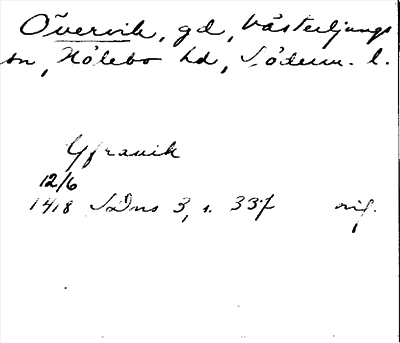 Övervik, gd, Västerljungs
sn, Hölebo hd, Söderm. l.
Yfrauik
12/6
1418 SDns 3, s. 337 orig.